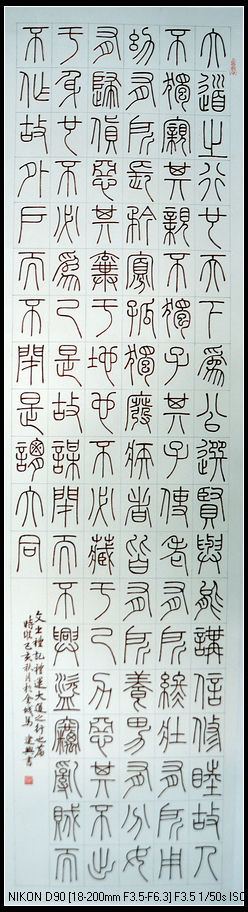 大道之行也天下為公選賢與能講信修睦故人
不獨親其親不獨子其子使老有所終壯有所用
幼有所長矜寡孤獨廢疾者皆有所養男有分女
有歸貨惡其棄于地也不必藏于己力惡其不出
于身也不必為己是故謀閉而不興盜竊亂賊而
不作故外戶而不閉是謂大同
文出禮記禮運大道之行也篇
己亥 月於金城馬建興書
NIKON D90 [18-200mm F3.5-F6.3] F3.5 1/50s ISO